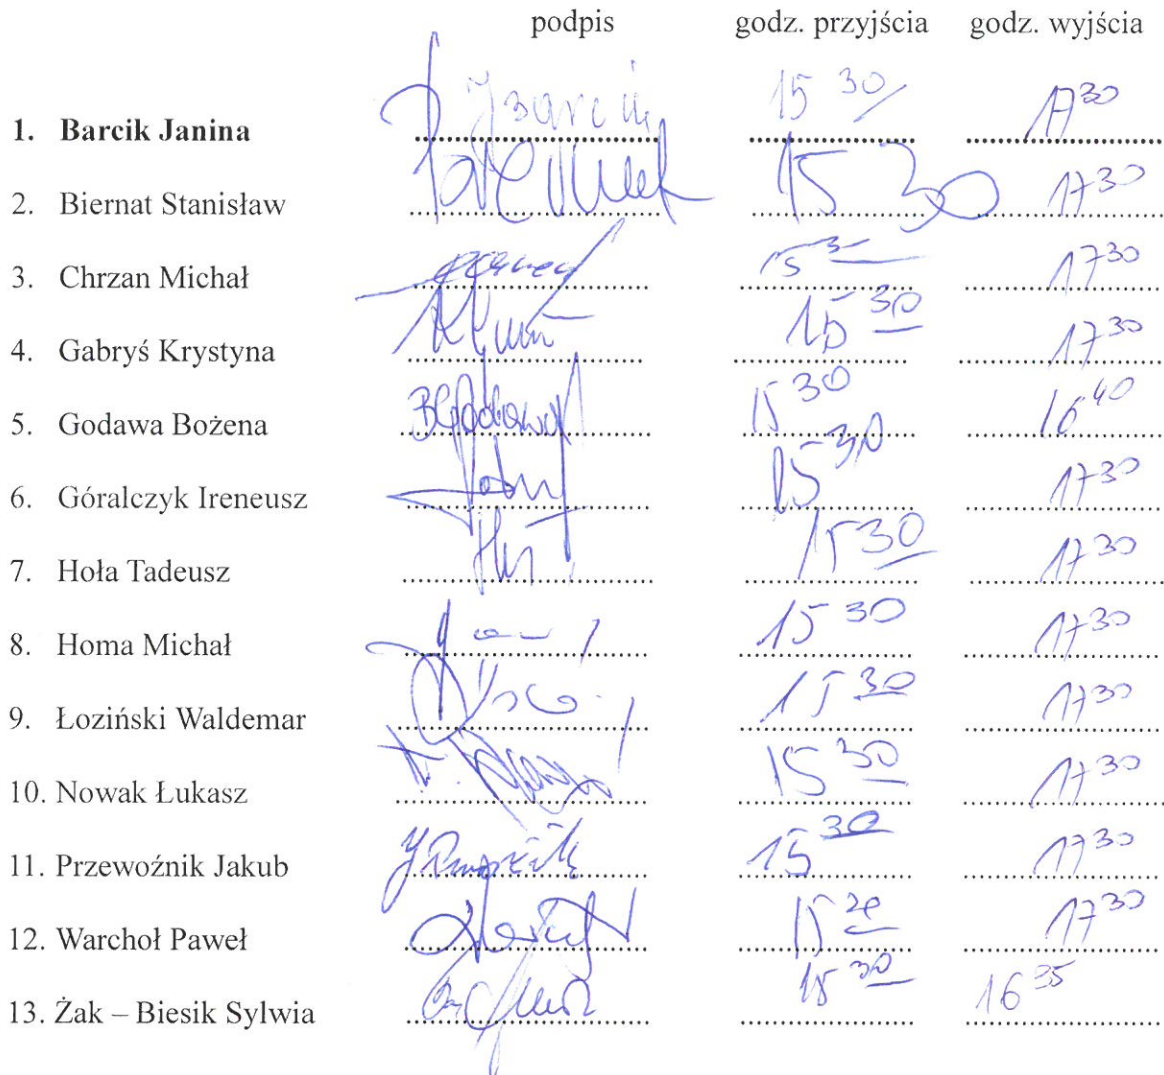 podpis godz. przyjścia godz. wyjścia
1. Barcik Janina 15 30 17 30
2. Biernat Stanisław 15 30 17 30
3. Chrzan Michał 15 17 30
4. Gabryś Krystyna 15 30 17 30
5. Godawa Bożena 15 30 16 40
6. Góralczyk Ireneusz 15 30 17 30
7. Hoła Tadeusz 15 30 17 30
8. Homa Michał 15 30 17 30
9. Łoziński Waldemar 15 30 17 30
10. Nowak Łukasz 15 30 17 30
11. Przewoźnik Jakub 15 30 17 30
12. Warchoł Paweł 15 17 30
13. Żak – Biesik Sylwia 15 30 16 35